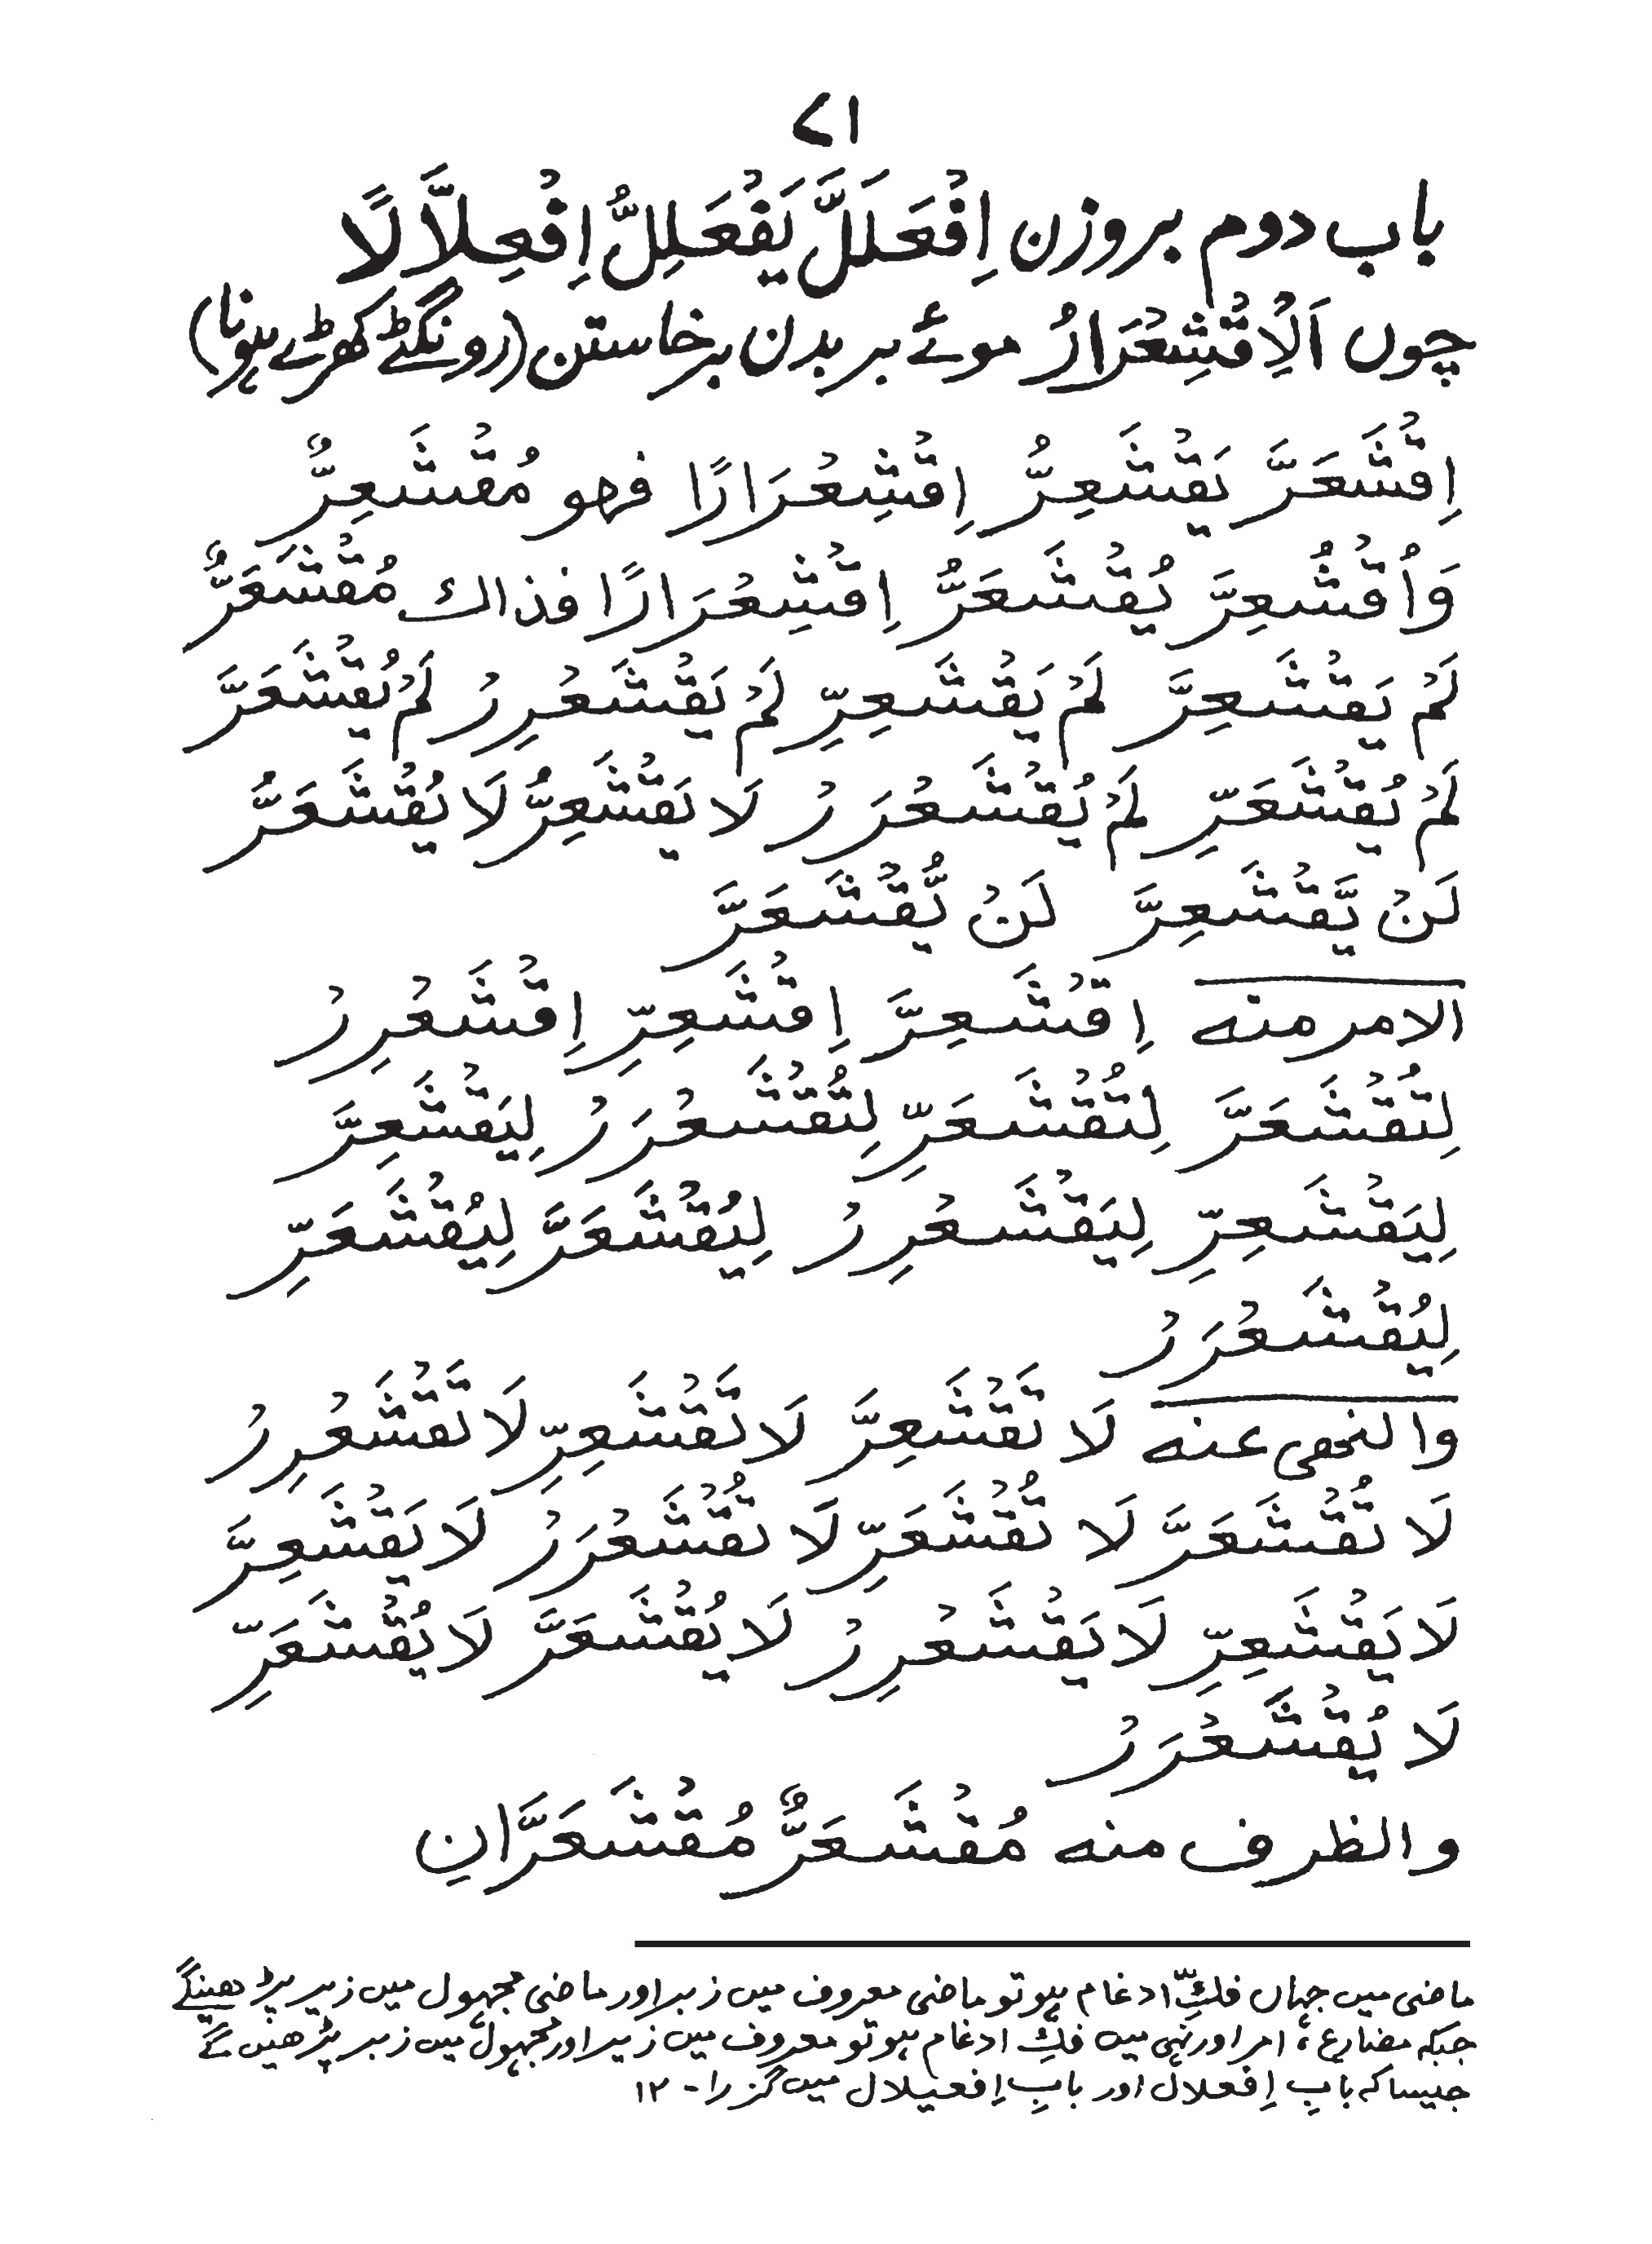 ۷۱
باب دوم بروزن اِفْعَلَلَّ يَفْعَلِلُّ اِفْعِلَّالًا
چوں اَلِاقْشِعْرَارُ موئے بر بدن برخاستن (رونگٹے کھڑے ہونا)
اِقْشَعَرَّ يَقْشَعِرُّ اِقْشِعْرَارًا فهو مُقْشَعِرٌّ
وَاُقْشُعِرَّ يُقْشَعَرُّ اِقْشِعْرَارًا فذاك مُقْشَعَرٌّ
لَمْ يَقْشَعِرَّ لَمْ يَقْشَعِرِّ لَمْ يَقْشَعْرِرْ لَمْ يُقْشَعَرَّ
لَمْ يُقْشَعَرِّ لَمْ يُقْشَعْرَرْ لَا يَقْشَعِرُّ لَا يُقْشَعَرُّ
لَنْ يَّقْشَعِرَّ لَنْ يُّقْشَعَرَّ
الامر منه اِقْشَعِرَّ اِقْشَعِرِّ اِقْشَعْرِرْ
لِتُقْشَعَرَّ لِتُقْشَعَرِّ لِتُقْشَعْرَرْ لِيَقْشَعِرَّ
لِيَقْشَعِرِّ لِيَقْشَعْرِرْ لِيُقْشَعَرَّ لِيُقْشَعَرِّ
لِيُقْشَعْرَرْ
والنهى عنه لَا تَقْشَعِرَّ لَا تَقْشَعِرِّ لَا تَقْشَعْرِرْ
لَا تُقْشَعَرَّ لَا تُقْشَعَرِّ لَا تُقْشَعْرَرْ لَا يَقْشَعِرَّ
لَا يَقْشَعِرِّ لَا يَقْشَعْرِرْ لَا يُقْشَعَرَّ لَا يُقْشَعَرِّ
لَا يُقْشَعْرَرْ
والظرف منه مُقْشَعَرٌّ مُقْشَعَرَّانِ
ماضی میں جہاں فکِّ ادغام ہو تو ماضی معروف میں زبر اور ماضی مجہول میں زیر پڑھینگے
جبکہ مضارع، امر اور نہی میں فکِّ ادغام ہو تو معروف میں زیر اور مجہول میں زبر پڑھیں گے
جیسا کہ بابِ اِفعلال اور بابِ اِفعیلال میں گزرا۔ ۱۲